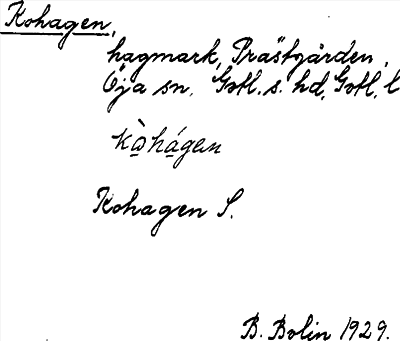 Kohagen,
hagmark, Prästgården,
Öja sn. Gotl. s. hd, Gotl. l
kòhágen
Kohagen S.
B. Bolin 1929.